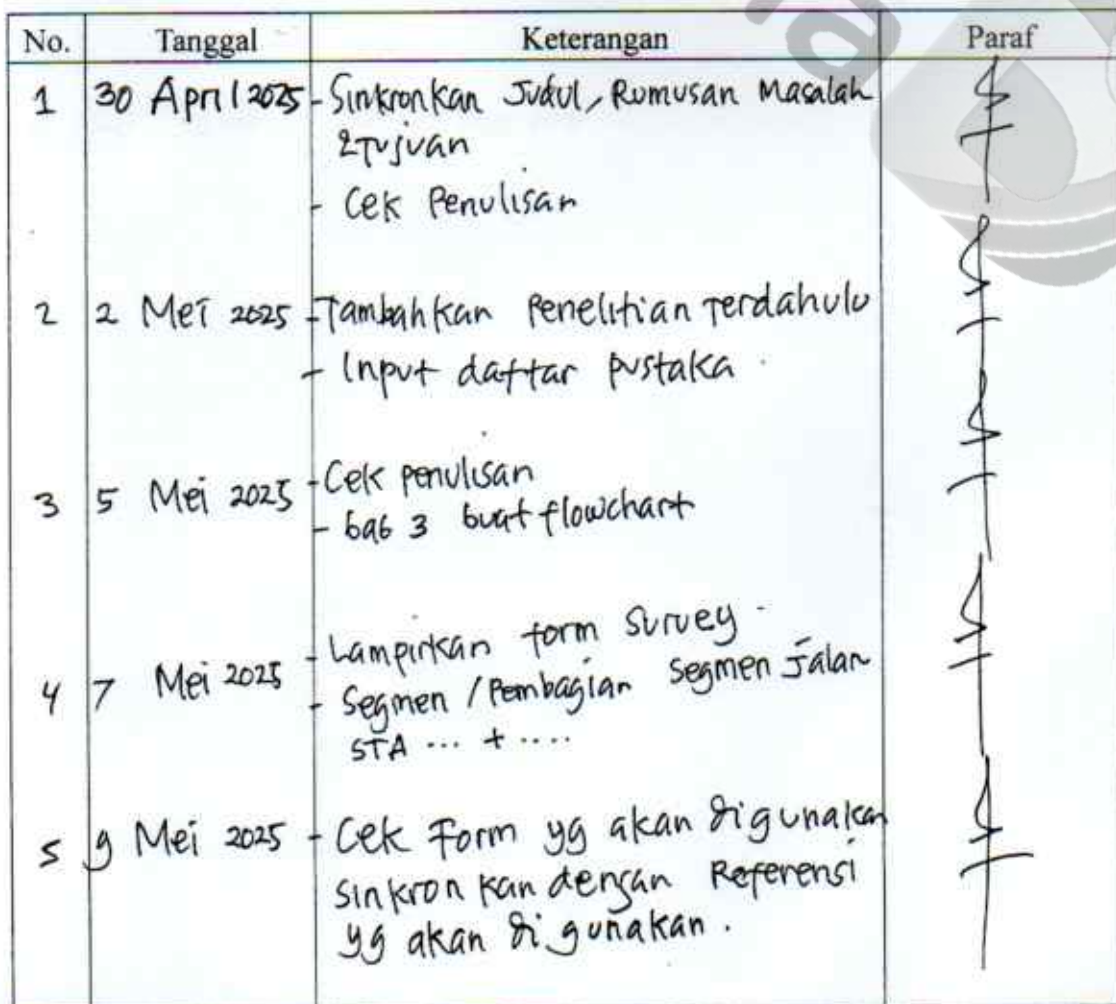 No. Tanggal Keterangan Paraf
1 30 April 2025 - Sinkronkan Judul, Rumusan Masalah
& Tujuan
- Cek Penulisan
2 2 Mei 2025 - Tambahkan Penelitian Terdahulu
- Input daftar pustaka.
3 5 Mei 2025 - Cek penulisan
- bab 3 buat flowchart
4 7 Mei 2025 - Lampirkan form survey
- Segmen / Pembagian Segmen Jalan
STA ... + ....
5 9 Mei 2025 - Cek Form yg akan digunakan
sinkronkan dengan Referensi
yg akan digunakan.